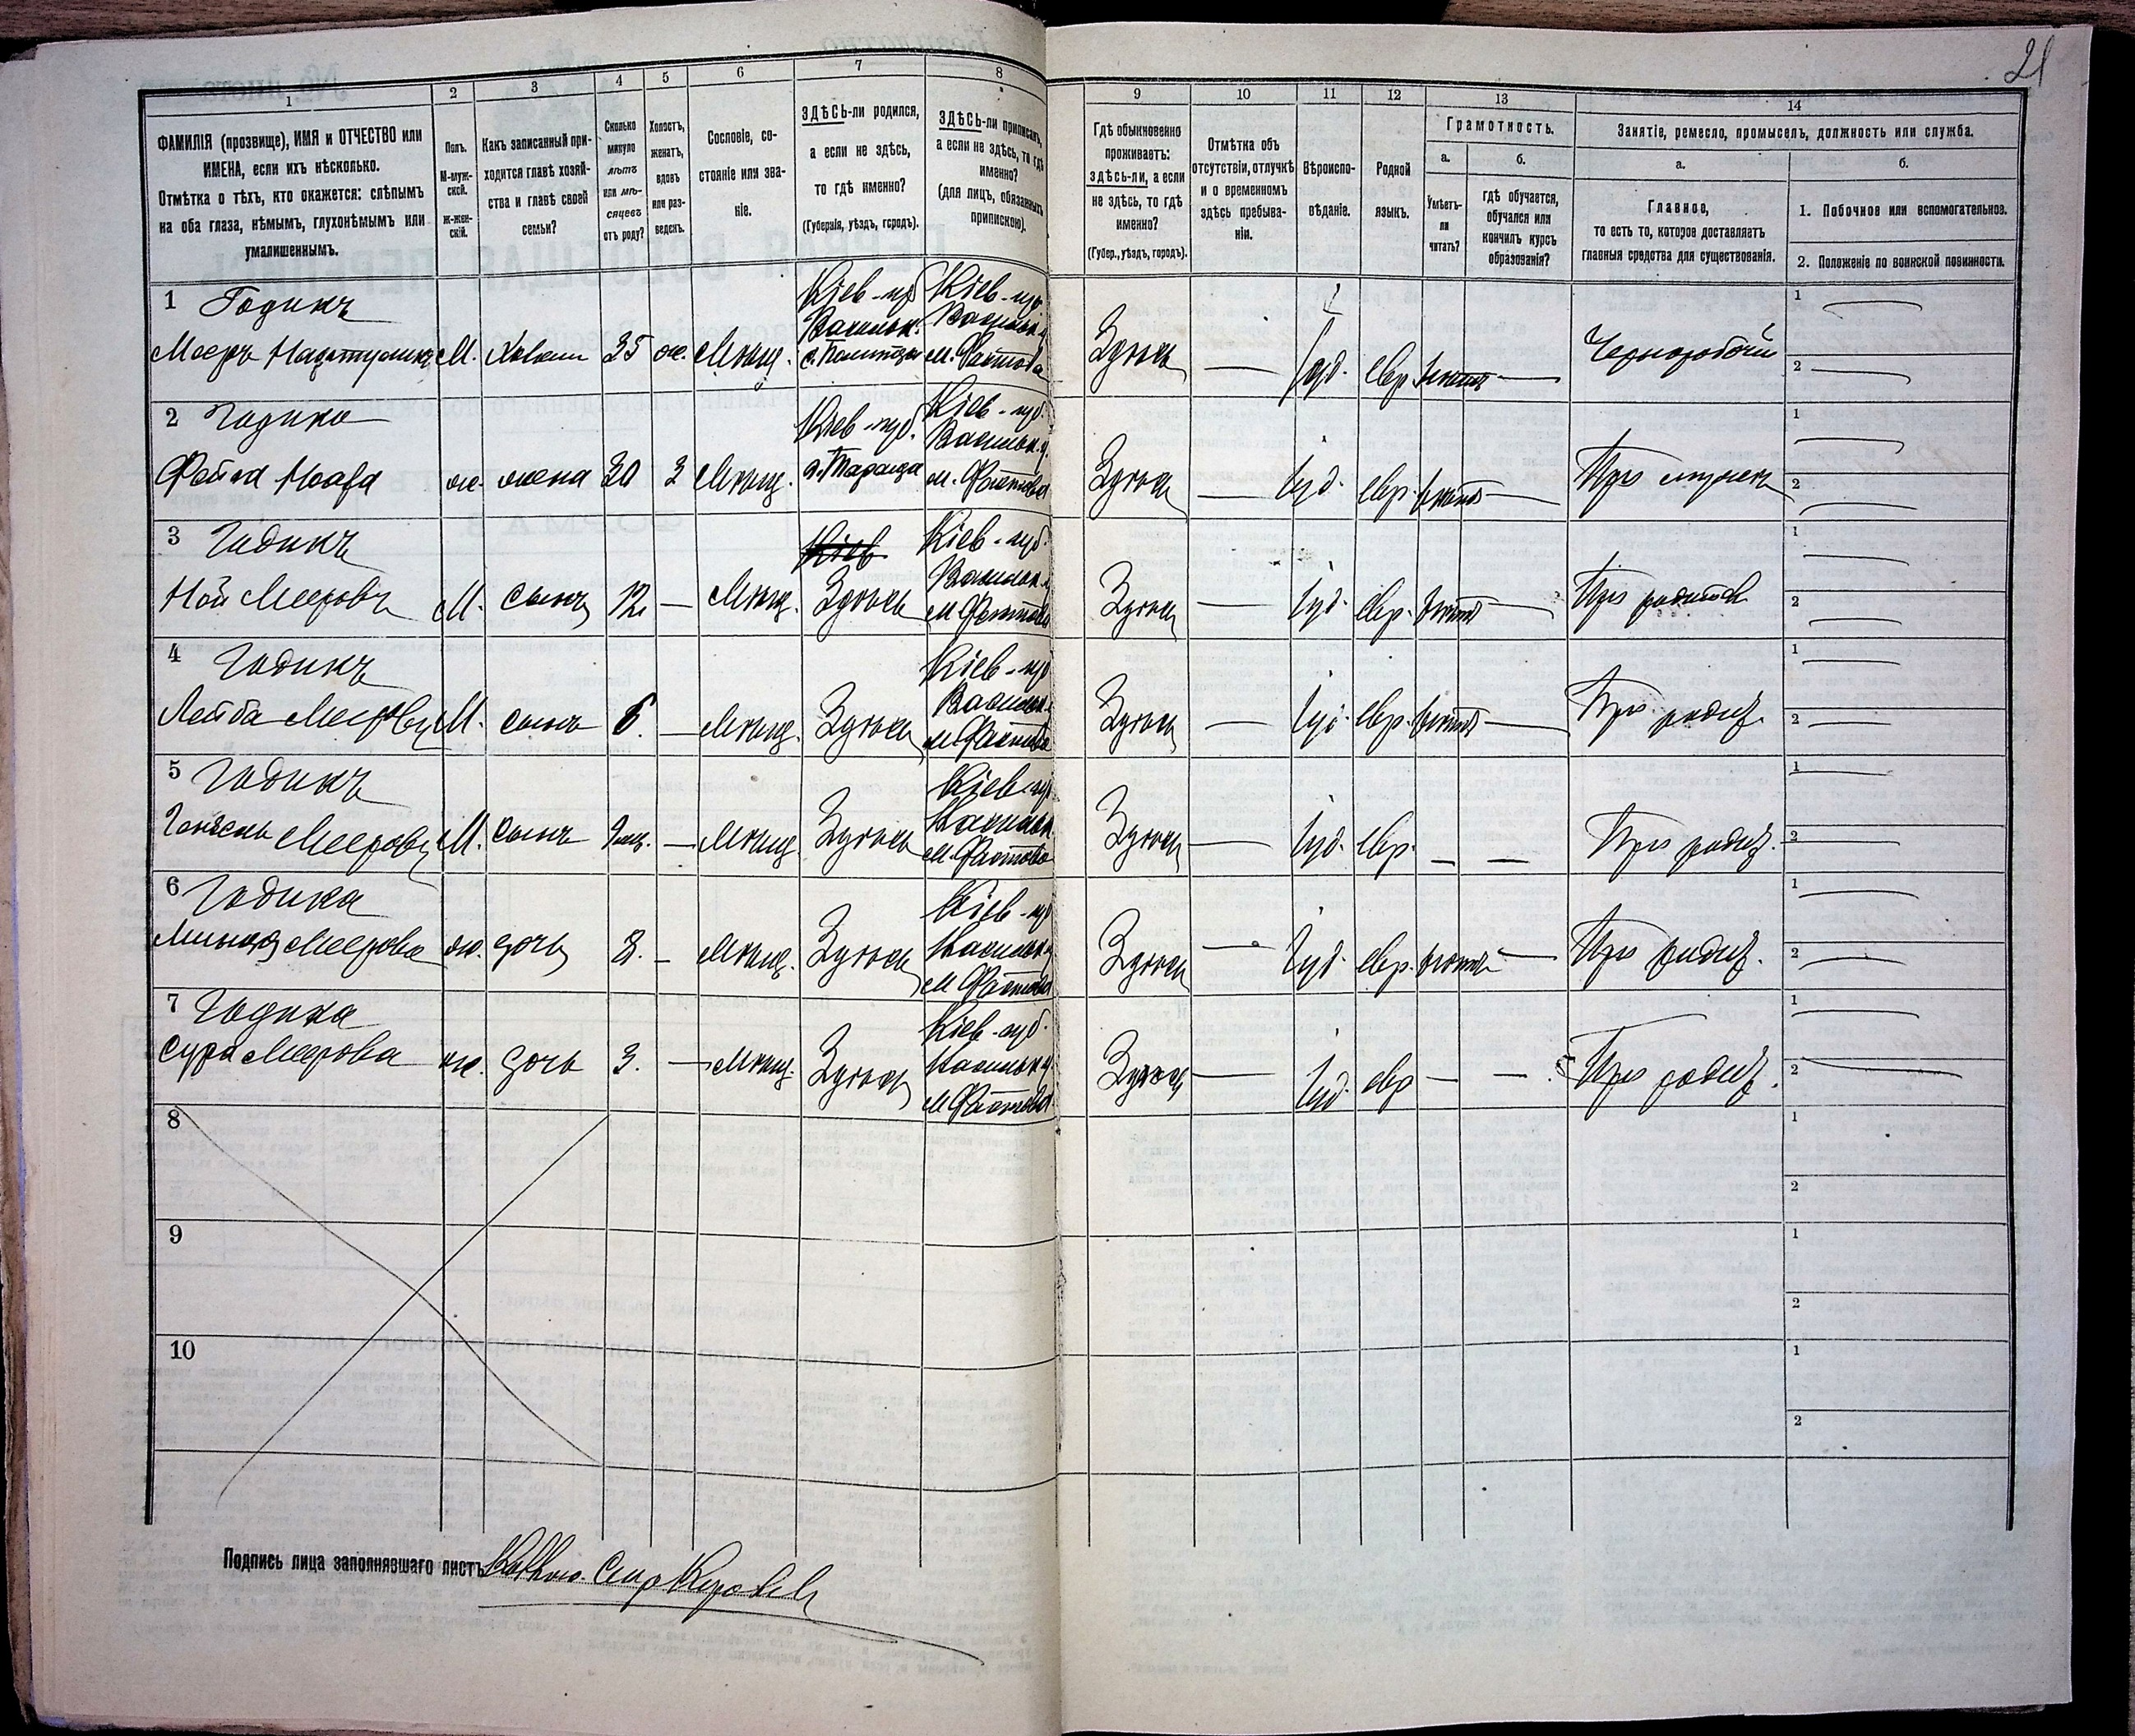 21
1
2
3
4
5
6
7
8
9
10
11
12
13
14
ФАМИЛІЯ (прозвище), ИМЯ и ОТЧЕСТВО или
ИМЕНА, если ихъ нѣсколько.
Отмѣтка о тѣхъ, кто окажется: слѣпымъ
на оба глаза, нѣмымъ, глухонѣмымъ или
умалишеннымъ.
Полъ.
М-муж-
ской.
Ж-жен-
скій.
Какъ записанный при-
ходится главѣ хозяй-
ства и главѣ своей
семьи?
Сколько
минуло
лѣтъ
или мѣ-
сяцевъ
отъ роду?
Холостъ,
женатъ,
вдовъ
или раз-
веденъ.
Сословіе, со-
стояніе или зва-
ніе.
ЗДѢСЬ-ли родился,
а если не здѣсь,
то гдѣ именно?
(Губернія, уѣздъ, городъ).
ЗДѢСЬ-ли приписанъ,
а если не здѣсь, то гдѣ
именно?
(для лицъ, обязанныхъ
припискою).
Гдѣ обыкновенно
проживаетъ:
здѣсь-ли, а если
не здѣсь, то гдѣ
именно?
(Губер., уѣздъ, городъ).
Отмѣтка объ
отсутствіи, отлучкѣ
и о временномъ
здѣсь пребыва-
ніи.
Вѣроиспо-
вѣданіе.
Родной
языкъ.
Грамотность.
а.
Умѣетъ-
ли
читать?
б.
гдѣ обучается,
обучался или
кончилъ курсъ
образованія?
Занятіе, ремесло, промыселъ, должность или служба.
а.
Главное,
то есть то, которое доставляетъ
главныя средства для существованія.
б.
1. Побочное или вспомогательное.
2. Положеніе по воинской повинности.
1 Годикъ
Мееръ М. 35 ж. Мѣщ. Кіев-губ Васильк. Кіев-губ Васильк. м. Фастова Здѣсь — Іуд. евр. нѣтъ — Чернорабочій 1 2
2 Годика
Фейга ж. жена 30 З Мѣщ. Кіев-губ. г. Тараща Кіев-губ. Васильк. у. м. Фастова Здѣсь — Іуд. евр. нѣтъ — При мужѣ 1 2
3 Годикъ
Ной Мееровъ М. сынъ 12 — Мѣщ. Здѣсь Кіев-губ. Васильк. у. м. Фастова Здѣсь — Іуд. евр. нѣтъ — При 1 2
4 Годикъ
Лейба Мееровъ М. сынъ 6. — Мѣщ. Здѣсь Кіев-губ Васильк. м. Фастова Здѣсь — Іуд. евр. нѣтъ — При родит. 1 2
5 Годикъ
Мееровъ М. сынъ — Мѣщ. Здѣсь Кіев-губ Васильк. м. Фастова Здѣсь — Іуд. евр. — — При родит. 1 2
6 Годика
Меерова ж. дочь 8. — Мѣщ. Здѣсь Кіев-губ Васильк. у м. Фастова Здѣсь — Іуд. евр. нѣтъ — При родит. 1 2
7 Годика
Сура Меерова ж. дочь 3. — Мѣщ. Здѣсь Кіев-губ. Васильк. у. м. Фастова Здѣсь — Іуд. евр — — При родит. 1 2
8 1 2
9 1 2
10 1 2
Подпись лица заполнявшаго листъ